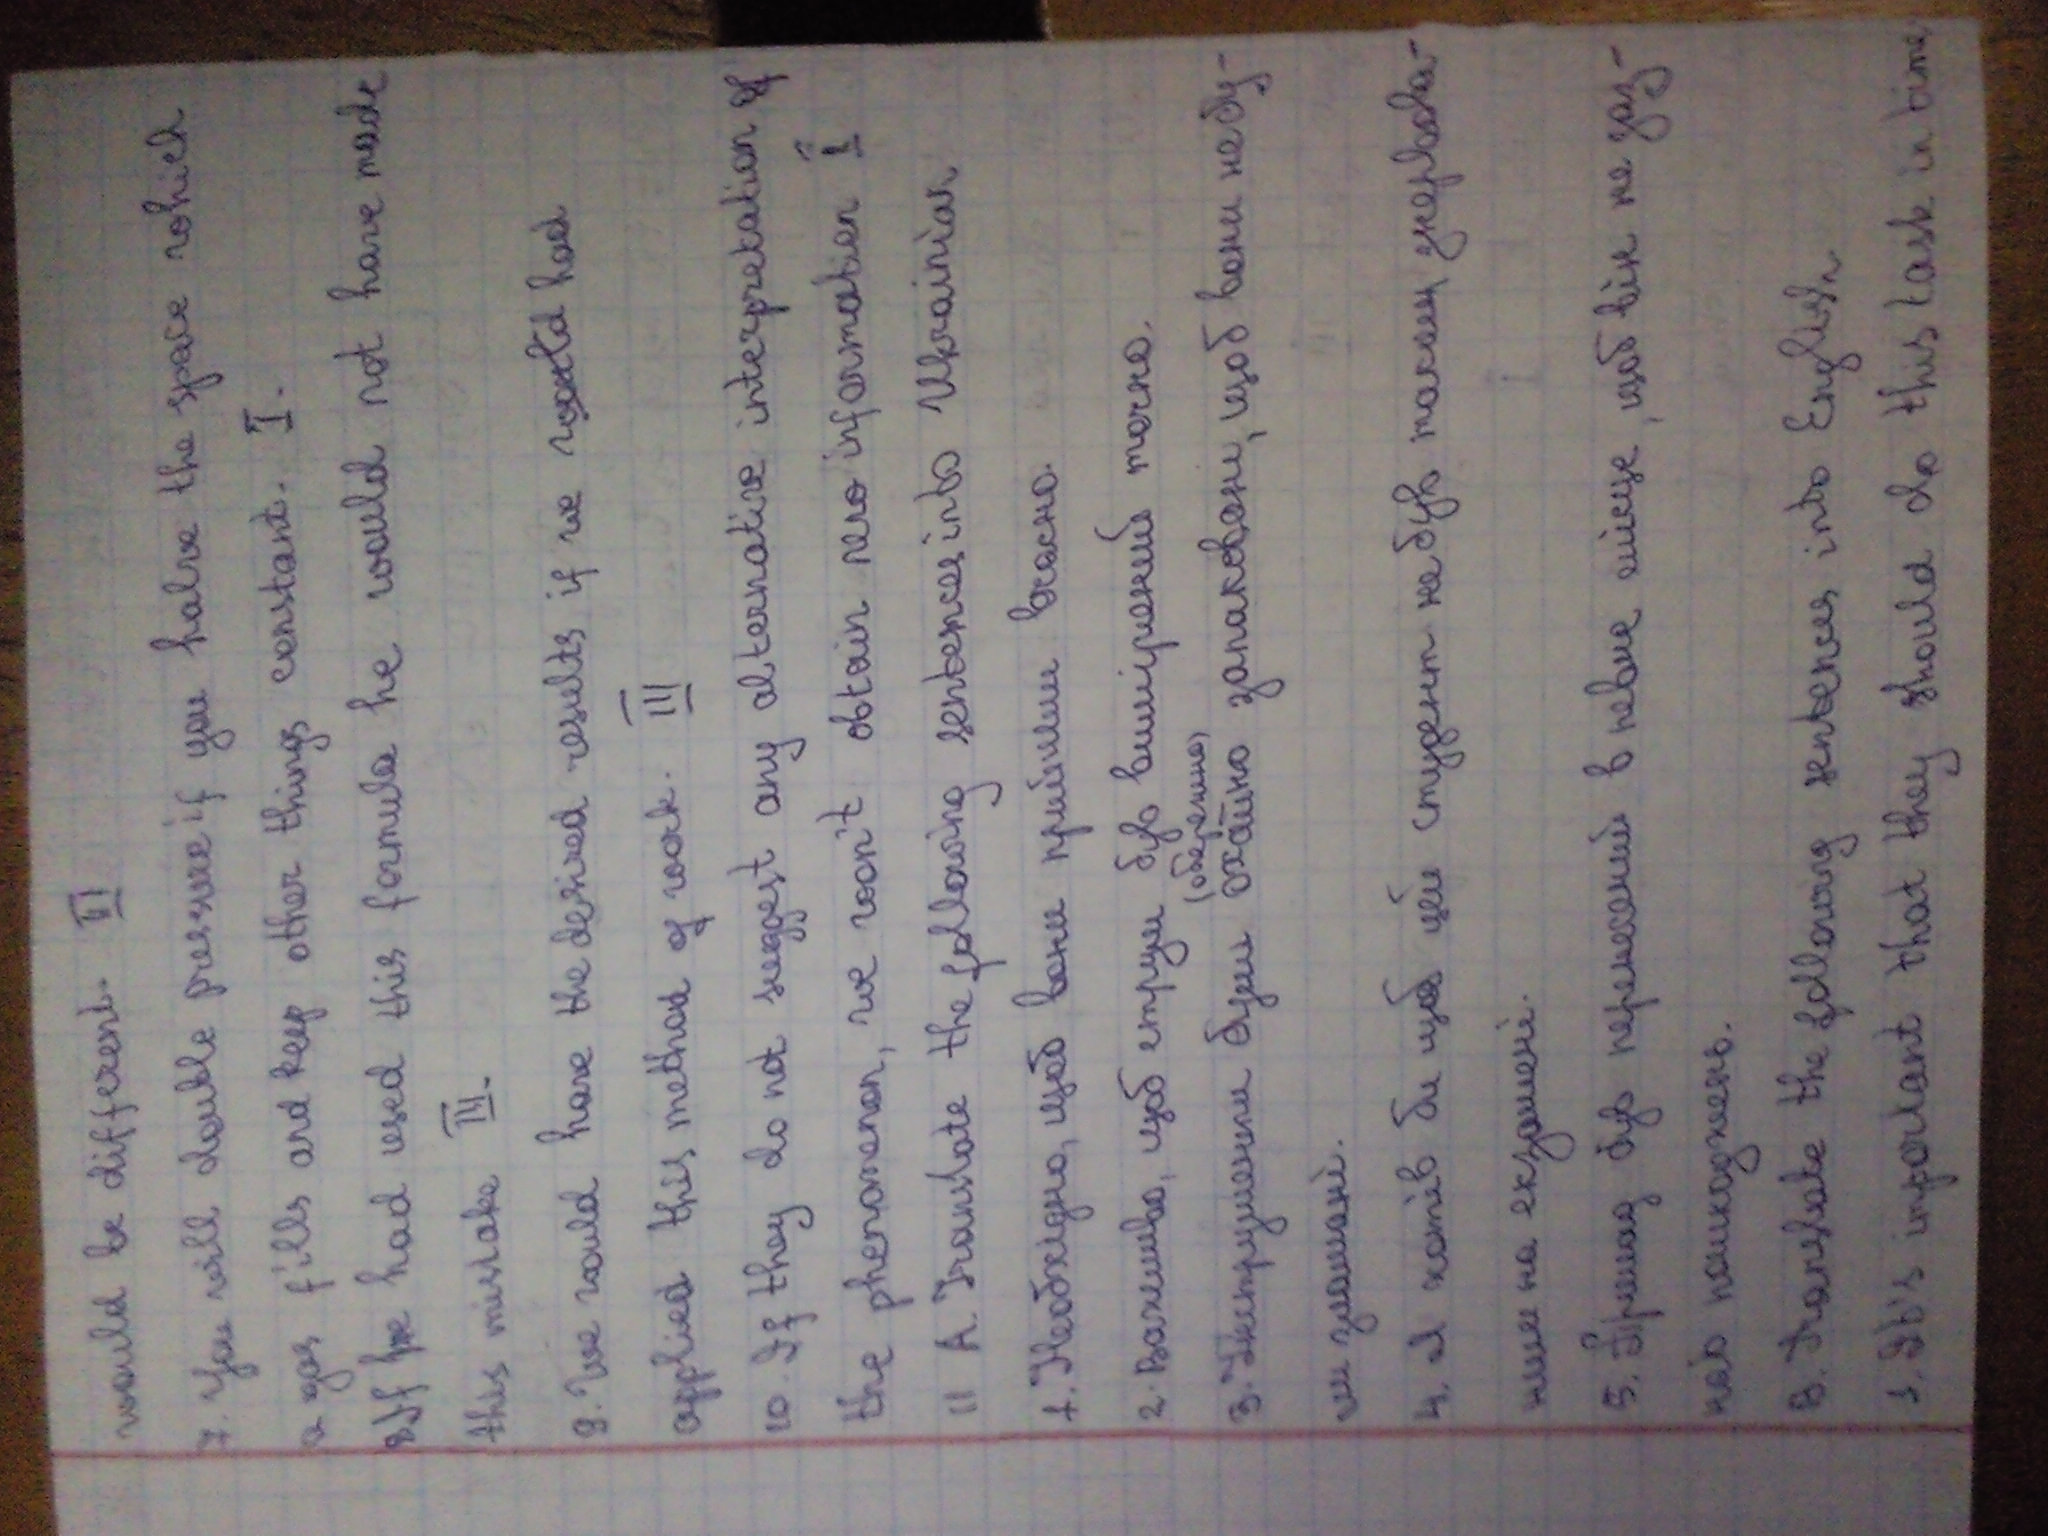 would be different. III
7. You will double pressure if you halve the space which
a gas fills and keep other things constant. I.
8 If he had used this formula he would not have made
this mistake III.
9. We would have the desired results if we had
applied this method of work. III
10. If they do not suggest any alternative interpretation of
the phenomenon, we won't obtain new information I
11 A. Translate the following sentences into Ukrainian
1. Необхідно, щоб вони прийшли вчасно.
2. Важливо, щоб струм був виміряний точно.
(обережно)
3. Інструменти були охайно запаковані, щоб вони не бу-
ли зламані.
4. Я хотів би щоб цей студент не був таким знервова-
ним на екзамені.
5. Прилад був переміщений в певне місце, щоб він не заз-
нав пошкоджень.
B. Translate the following sentences into English
1. It's important that they should do this task in time